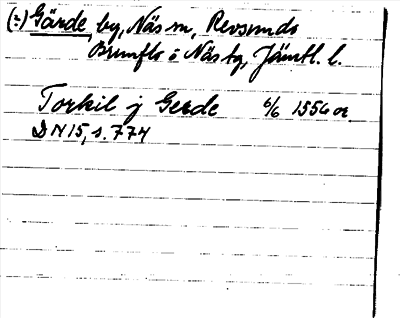 (:) Gärde, by, Näs sn, Revsunds
Brunflo o Näs tg, Jämtl. l.
Torkil j Gerde 6/6 1556 or.
DN 15, s. 774